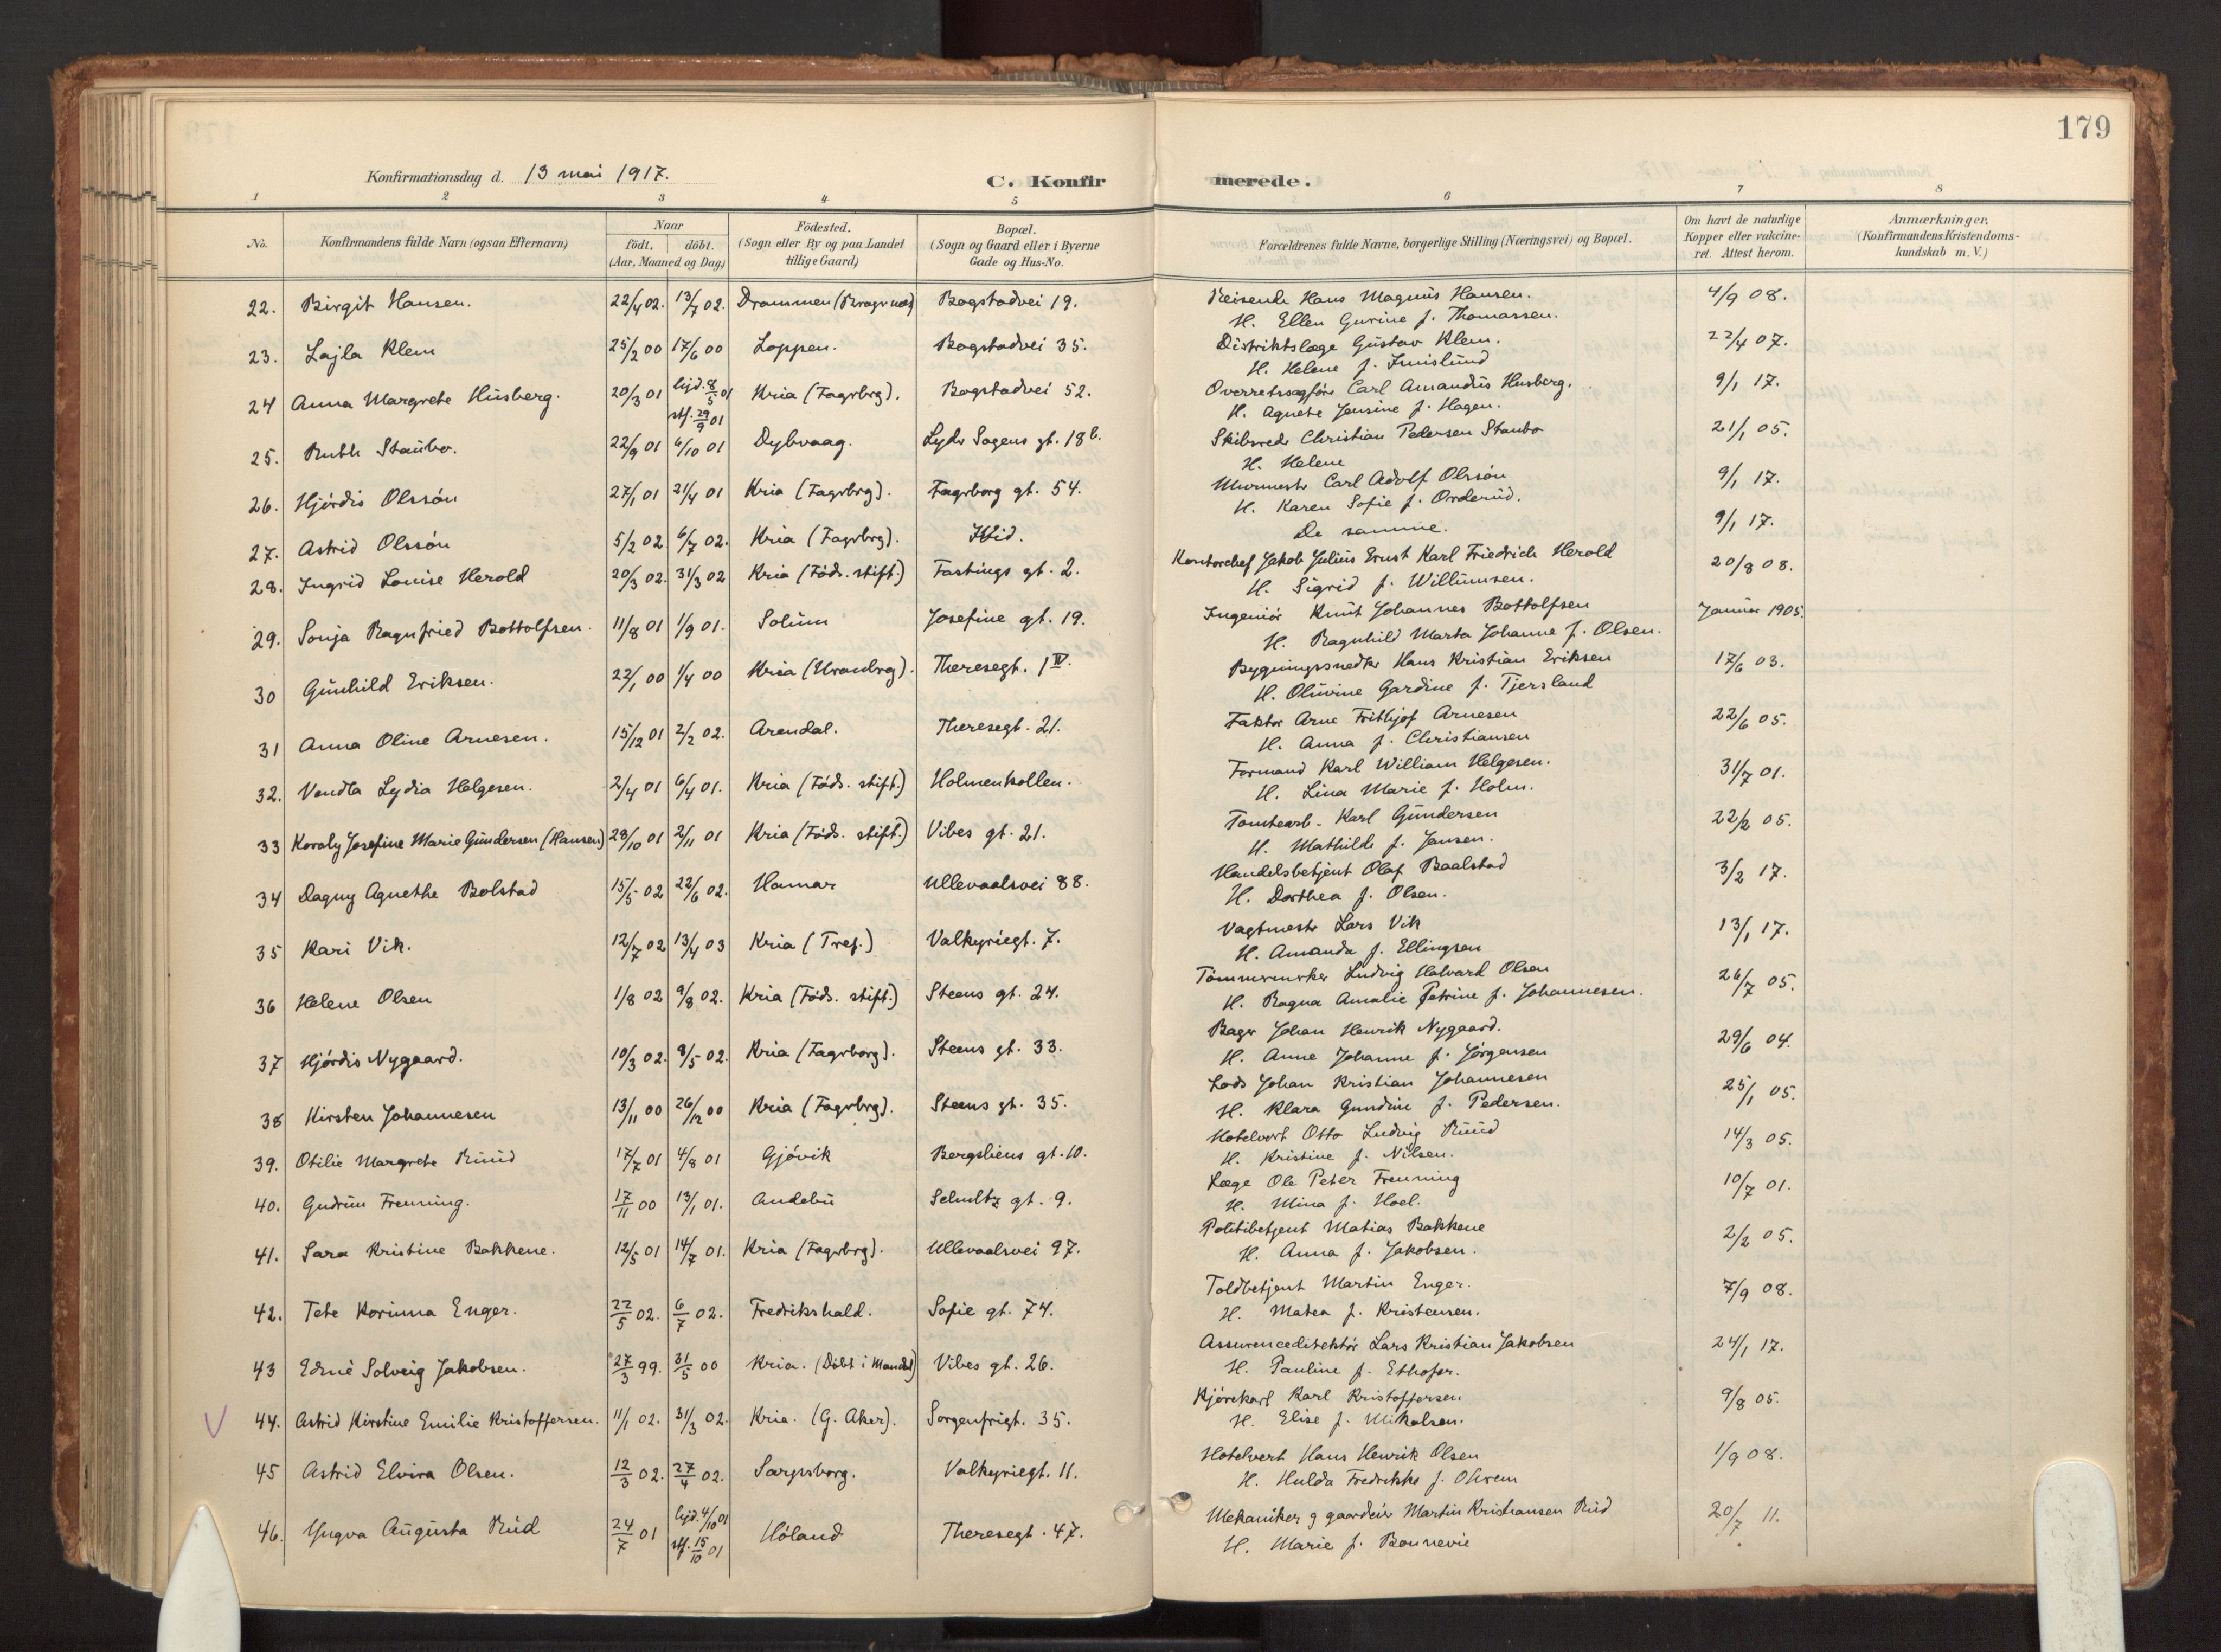 179
Konfirmationsdag d. 13 mai 1917.
C. Konfirmerede.
1 2 3 4 5 6 7 8
No.
Konfirmandens fulde Navn (ogsaa Efternavn)
Naar
födt. döbt.
(Aar, Maaned og Dag)
Födested.
(Sogn eller By og paa Landet
tillige Gaard)
Bopæl.
(Sogn og Gaard eller i Byerne
Gade og Hus-No.
Forældrenes fulde Navne, borgerlige Stilling (Næringsvei) og Bopæl.
Om havt de naturlige
Kopper eller vakcine-
ret. Attest herom.
Anmærkninger.
(Konfirmandens Kristendoms-
kundskab m. V.)
22. Birgit Hansen. 22/4 02. 13/7 02. Drammen (Bragnæs) Bogstadvei 19. Reisende Hans Magnus Hansen. 4/9 08.
H. Ellen Gurine f. Thomassen.
23. Lajla Klem 25/2 00 17/6 00 Loppen. Bogstadvei 35. Distriktslæge Gustav Klem. 22/4 07.
H. Helene f. Juuslund
24 Anna Margrete Husberg. 20/3 01 hjd. 8/5 01 Kria (Fagrbrg). Bogstadvei 52. Overretssagfører Carl Amandus Husberg. 9/1 17.
stf. 29/9 01 H. Agnete Jensine f. Hagen.
25. Ruth Staubo. 22/9 01 6/10 01 Dybvaag. Lyder Sagens gt. 18b. Skibsreder Christian Pedersen Staubo 21/1 05.
H. Helene
26. Hjördis Olssön 27/1 01 21/4 01 Kria (Fagrbrg). Fagrborg gt. 54. Murmester Carl Adolf Olssön 9/1 17.
H. Karen Sofie f. Orderud.
27. Astrid Olssön 5/2 02 6/7 02. Kria (Fagrbrg). Ibid. De samme. 9/1 17.
28. Ingrid Louise Herold 20/3 02. 31/3 02 Kria (Föds. stift.) Fastings gt. 2. Kontorchef Jakob Julius Ernst Karl Friedrich Herold 20/8 08.
H. Sigrid f. Willumsen.
29. Sonja Ragnfried Bottolfsen. 11/8 01 1/9 01. Solum Josefine gt. 19. Ingeniör Knut Johannes Bottolfsen Januar 1905
H. Ragnhild Marta Johanne f. Olsen.
30 Gunhild Eriksen. 22/1 00 1/4 00 Kria (Uranbrg). Theresegt. 1 IV. Bygningssnedker Hans Kristian Eriksen 17/6 03.
H. Oluvine Gardine f. Tjersland
31 Anna Oline Arnesen. 15/12 01 2/2 02. Arendal. Theresegt. 21. Faktor Arne Frithjof Arnesen 22/6 05.
H. Anna f. Christiansen
32. Vendla Lydia Helgesen. 2/4 01 6/4 01. Kria (Föds. stift.) Holmenkollen. Formand Karl William Helgesen. 31/7 01.
H. Lina Marie f. Holm.
33 Koraly Josefine Marie Gundersen (Hansen) 28/10 01 2/11 01 Kria (Föds. stift.) Vibes gt. 21. Tomtearb. Karl Gundersen 22/2 05.
H. Mathilde f. Jansen.
34 Dagny Agnethe Bolstad 15/5 02 22/6 02. Hamar Ullevaalsvei 88. Handelsbetjent Olaf Baalstad 3/2 17.
H. Dorthea f. Olsen.
35 Kari Vik. 12/7 02 13/4 03 Kria (Tref.) Valkyriegt. 7. Vagtmester Lars Vik 13/1 17.
H. Amanda f. Ellingsen
36 Helene Olsen 1/8 02 9/8 02. Kria (Föds. stift.) Steens gt. 24. Tömmermerker Ludvig Halvard Olsen 26/7 05.
H. Ragna Amalie Petrine f. Johannesen.
37 Hjördis Nygaard. 10/3 02. 8/5 02. Kria (Fagrborg). Steens gt. 33. Bager Johan Henrik Nygaard. 29/6 04.
H. Anne Johanne f. Jörgensen
38 Kirsten Johannesen 13/11 00 26/12 00 Kria (Fagrbrg). Steens gt. 35. Lods Johan Kristian Johannesen 25/1 05.
H. Klara Gundine f. Pedersen.
39. Otilie Margrete Ruud 17/7 01 4/8 01 Gjövik Bergsliens gt. 10. Hotelvert Otto Ludvig Ruud 14/3 05.
H. Kristine f. Nilsen.
40. Gudrun Frenning. 17/11 00 13/1 01. Andebu Schultz gt. 9. Læge Ole Peter Frenning 10/7 01.
H. Mina f. Hoel.
41. Sara Kristine Bakkene. 12/5 01 14/7 01. Kria (Fagrbrg). Ullevaalsvei 97. Politibetjent Matias Bakkene 2/2 05.
H. Anna f. Jakobsen.
42. Tete Korinna Enger. 22/5 02. 6/7 02. Fredrikshald. Sofie gt. 74. Toldbetjent Martin Enger. 7/9 08.
H. Matea f. Kristensen.
43 Edmé Solveig Jakobsen. 27/3 99. 31/5 00 Kria. (Döbt i Mandal) Vibes gt. 26. Assurancedirektör Lars Kristian Jakobsen 24/1 17.
H. Pauline f.
V 44. Astrid Kirstine Emilie Kristoffersen. 11/1 02. 31/3 02. Kria. (G. Aker). Sorgenfrigt. 35. Kjörekarl Karl Kristoffersen 9/8 05.
H. Elise f. Mikalsen.
45 Astrid Elvira Olsen. 12/3 02. 27/4 02. Sarpsborg. Valkyriegt. 11. Hotelvert Hans Henrik Olsen 1/9 08.
H. Hulda Fredrikke f.
46. Yngva Augusta Rud 24/7 01 hjd. 4/10 01 Höland Theresegt. 47. Mekaniker og gaardeier Martin Kristiansen Rud 20/7 11.
stf. 15/10 01 H. Marie f. Bonnevie